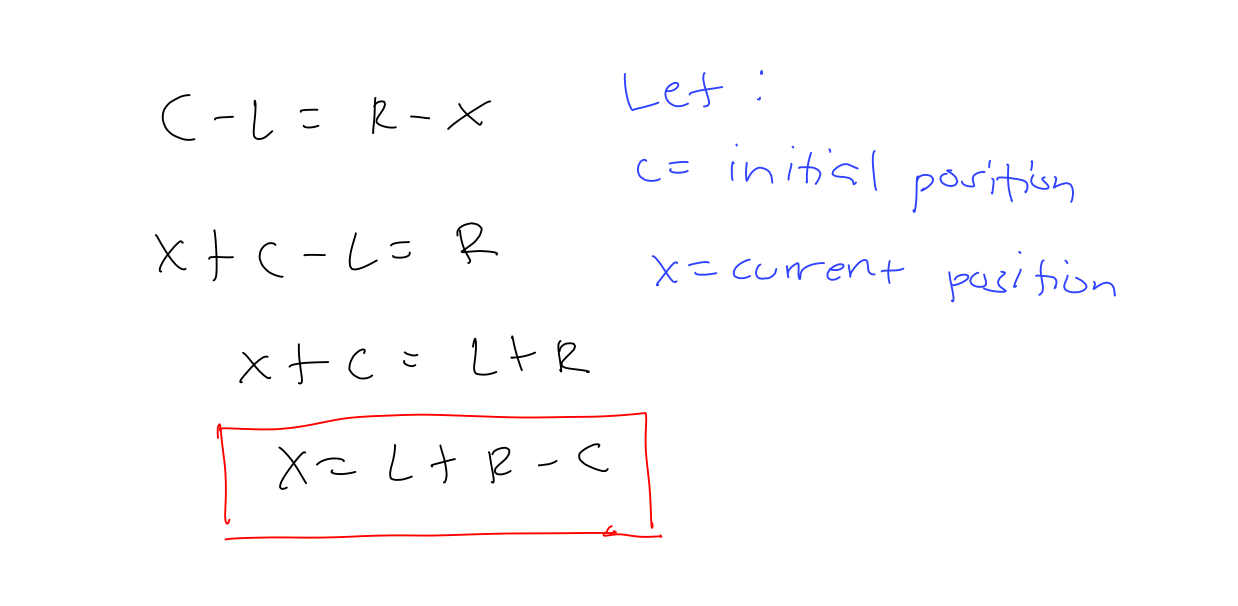 C - L = R - X
X + C - L = R
X + C = L + R
X = L + R - C
Let :
C = initial position
X = current position